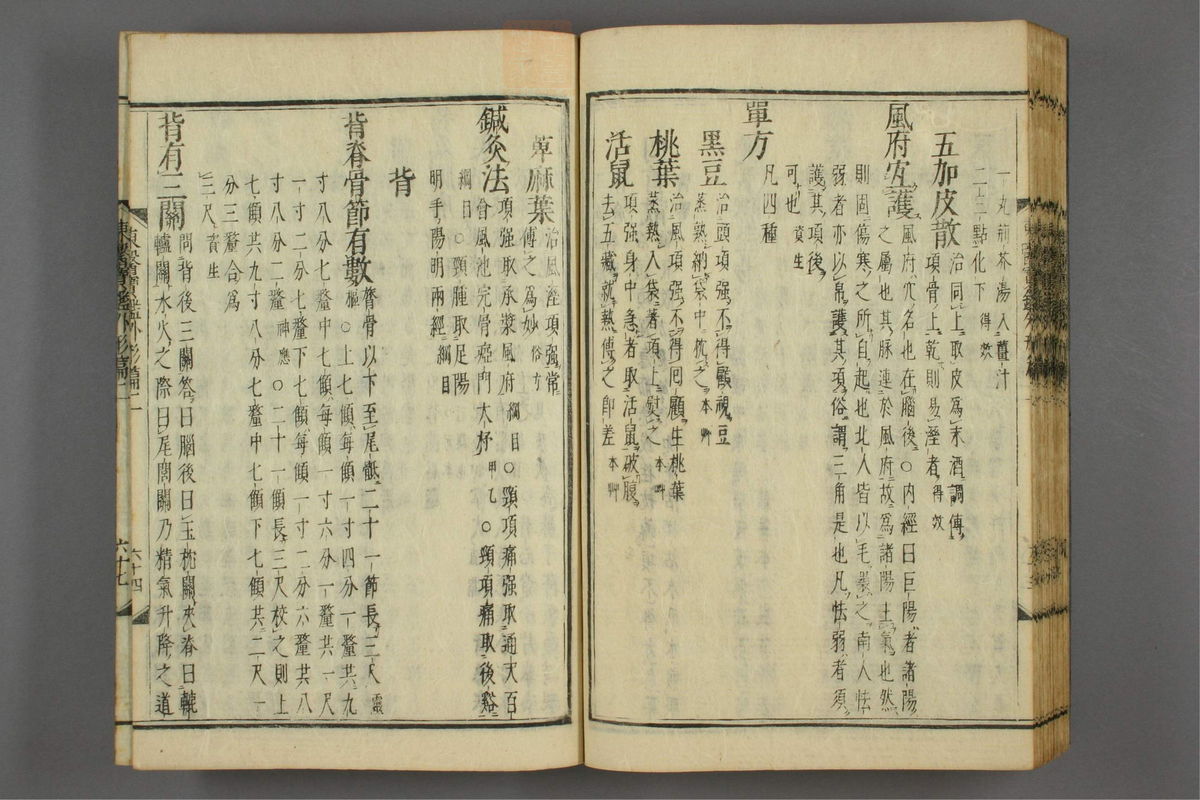 一丸前芥湯入薑汁
二三點化下 得效
五加皮散 治同上取皮爲末酒調傅
項骨上乾則易溼者 得效
風府宜護 風府穴名也在腦後○內經曰巨陽者諸陽
之屬也其脉連於風府故爲諸陽主氣也然
則固傷寒之所自起也北人皆以毛裘之南人怯
弱者亦以帛護其項俗謂三角是也凡怯弱者須
護其項後
可也 資生
單方 凡四種
黑豆 治頭項强不得顧視豆
蒸熟納袋中枕之 本艸
桃葉 治風項强不得囘顧生桃葉
蒸熱入袋著項上熨之 本艸
活鼠 項强身中急者取活鼠破腹
去五臟就熱傅之卽差 本艸
萆麻葉 治風溼項强常
傅之爲妙 俗方
鍼灸法 項强取承漿風府 綱目○頸項痛强取通天百
會風池完骨瘂門大杼 甲乙○頸項痛取後谿
綱目○頸腫取足陽
明手陽明兩經 綱目
背
背脊骨節有數 膂骨以下至尾骶二十一節長三尺 靈
樞○上七顀每顀一寸四分一釐共九
寸八分七釐中七顀每顀一寸六分一釐共一尺
一寸二分七釐下七顀每顀一寸二分六釐共八
寸八分二釐 神應○二十一顀長三尺校之則上
七顀共九寸八分七釐中七顀下七顀共二尺一
分三釐合爲
三尺 資生
背有三關 問背後三關答曰腦後曰玉枕關夾脊曰轆
轤關水火之際曰尾閭關乃精氣升降之道
東醫寶鑑外形篇二
六十四
六十七